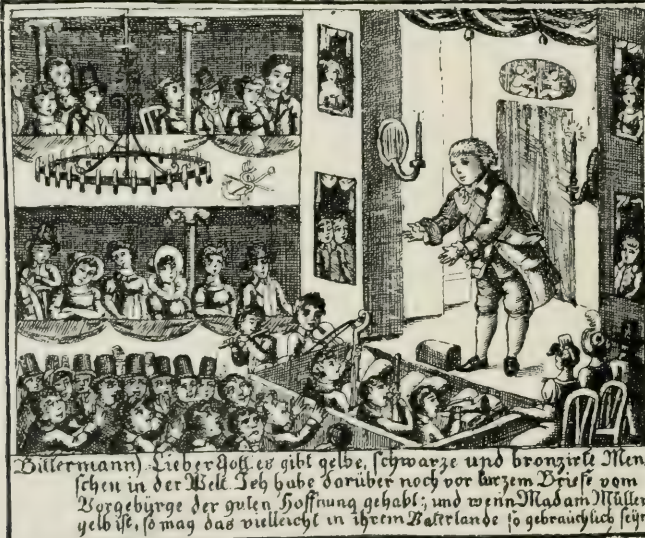 Bittermann) Lieber Gott es gibt gelbe, schwarze und bronzirte Men
schen in der Welt. Ich habe darüber noch vor kurzem Briefe vom
Vorgebürge der guten Hoffnung gehabt; und wenn Madam Müller
gelb ist, so mag das vielleicht in ihrem Vaterlande so gebräuchlich seyn